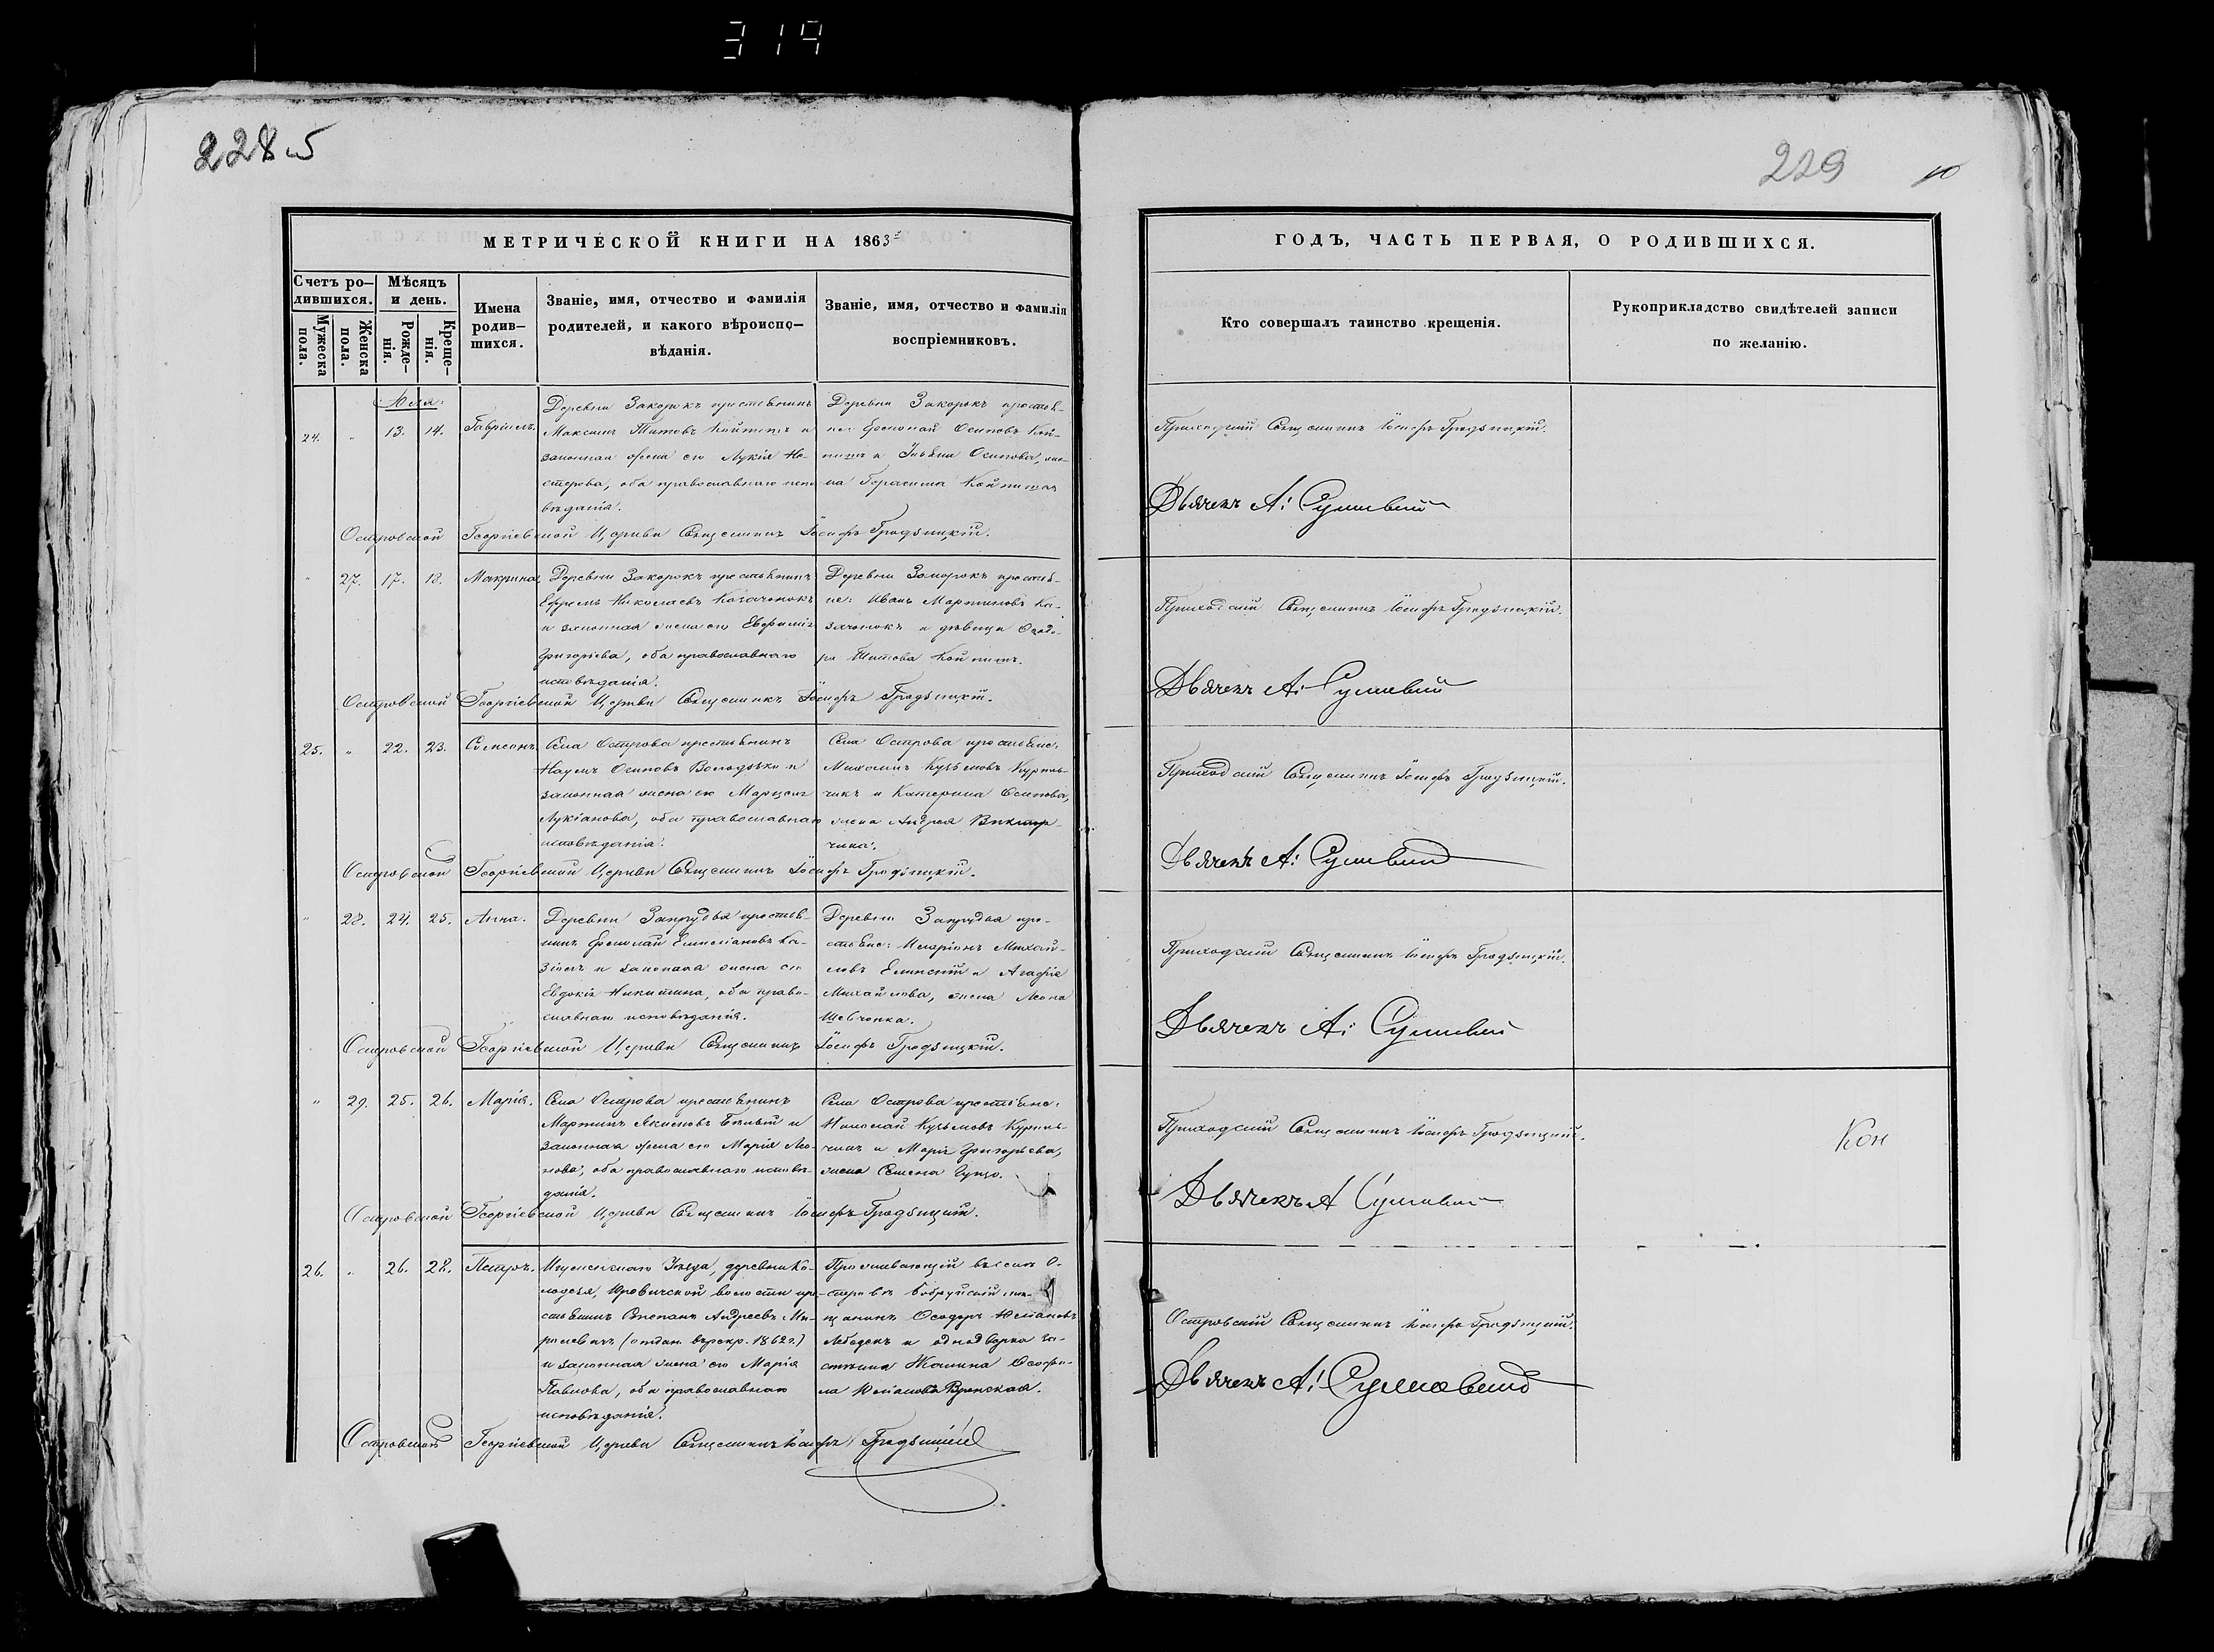 319
228 об
229
10
МЕТРИЧЕСКОЙ КНИГИ НА 1863
ГОДЪ, ЧАСТЬ ПЕРВАЯ, О РОДИВШИХСЯ.
Счетъ ро–
дившихся.
Мужеска
пола.
Женска
пола.
Мѣсяцъ
и день.
Рожде–
нія.
Креще–
нія.
Имена
родив–
шихся.
Званіе, имя, отчество и фамилія
родителей, и какого вѣроиспо–
вѣданія.
Званіе, имя, отчество и фамилія
воспріемниковъ.
Кто совершалъ таинство крещенія.
Рукоприкладство свидѣтелей записи
по желанію.
Юля.
24. " 13. 14. Гавріилъ.
Деревни Закорокъ крестьянинъ
Максимъ Титовъ Койпишъ и
законная жена его Лукія Не-
стерова, оба православнаго испо
вѣданія.
Деревни Закорокъ крестья-
не: Ермолай Осиповъ Кой-
пишъ и Осипова, же-
на Герасима Койпиша
Приходскій Священникъ Іосифъ Гродзицкій.
Дьячекъ А:
Островской Георгіевской Церкви Священникъ Іосифъ Гродзицкій.
" 27. 17. 18. Макрина.
Деревни Закорокъ крестьянинъ
Ефремъ Николаевъ Козаченокъ
и законная жена его Евфимія
Григорьева, оба православнаго
исповѣданія.
Деревни Закорокъ крестья-
не: Иванъ Мартиновъ Ка-
заченокъ и дѣвица Ѳеодо-
ра Титова Койпишъ.
Приходскій Священникъ Іосифъ Гродзицкій.
Дьячекъ А:
Островской Георгіевской Церкви Священникъ Іосифъ Гродзицкій.
25. " 22. 23. Самсонъ.
Села Острова крестьянинъ
Наумъ Осиповъ Володзько и
законная жена его
Лукіанова, оба православнаго
исповѣданія.
Села Острова крестьяне:
Михаилъ Кузьмовъ Куриль-
чикъ и Катерина Осипова,
жена Андрея
чика.
Приходскій Священникъ Іосифъ Гродзицкій.
Дьячекъ А:
Островской Георгіевской Церкви Священникъ Іосифъ Гродзицкій.
" 28. 24. 25. Анна.
Деревни Запрудья крестья-
нинъ Ермолай Емиліановъ Ка-
и законная жена его
Евдокія Никитина, оба право-
славнаго исповѣданія.
Деревни Запрудья кре-
стьяне: Иларіонъ Михай-
ловъ Елинскій и Агафія
Михайлова, жена Леона
Шевченка.
Приходскій Священникъ Іосифъ Гродзицкій.
Дьячекъ А:
Островской Георгіевской Церкви Священникъ Іосифъ Гродзицкій.
" 29. 25. 26. Марія.
Села Острова крестьянинъ
Мартинъ Якимовъ Бѣлый и
законная жена его Марія Лео-
нова, оба православнаго исповѣ-
данія.
Села Острова крестьяне:
Николай Кузьмовъ Куриль-
чикъ и Марія Григорьева,
жена Семена
Приходскій Священникъ Іосифъ Гродзицкій.
Кон
Дьячекъ А
Островской Георгіевской Церкви Священникъ Іосифъ Гродзицкій.
26. " 26. 28. Петръ.
Игуменскаго Уѣзда, деревни Ко-
лодезя, Юровичской волости кре-
стьянинъ Степанъ Андреевъ Ми-
ролевичъ 1862 г.)
и законная жена его Марія
Павлова, оба православнаго
исповѣданія.
Проживающій въ селѣ О-
стровѣ Бобруйскій мѣ-
щанинъ Ѳеодоръ Юліановъ
Лебедокъ и однодворка за-
Ѳеофи-
ла Юліанова Вронская.
Островскій Священникъ Іосифъ Гродзицкій.
Дьячекъ А:
Островской Георгіевской Церкви Священникъ Іосифъ Гродзицкій